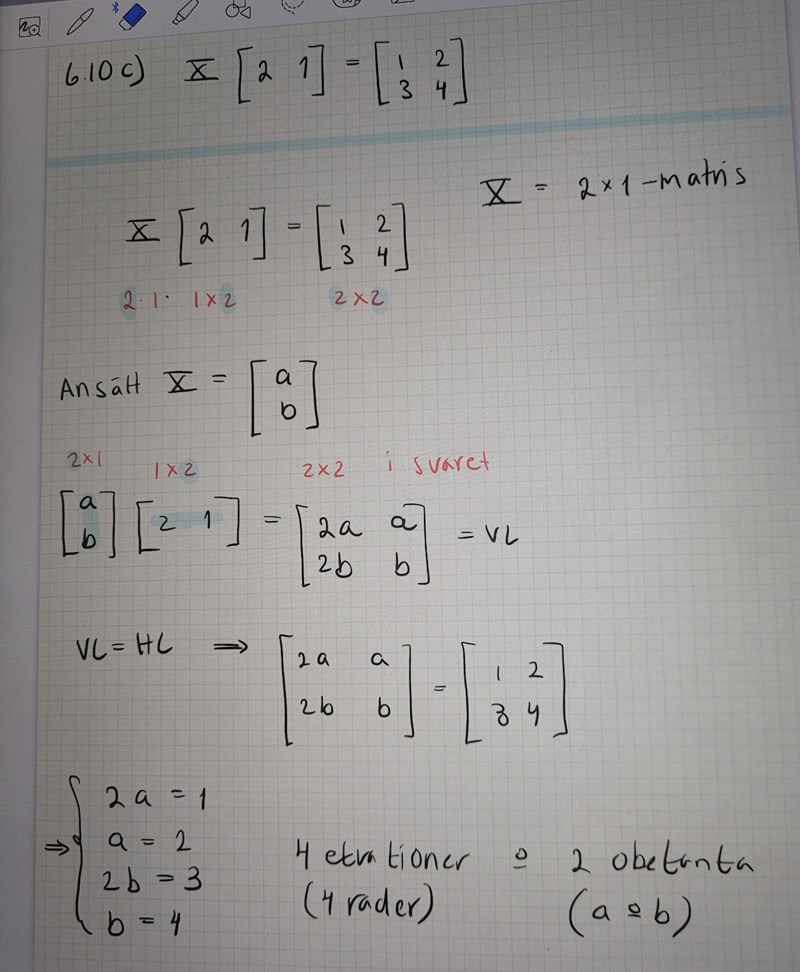 6.10 c) X [2 1] = [1 2
3 4]
X = 2×1-matris
X [2 1] = [1 2
3 4]
2·1· 1×2 2×2
Ansätt X = [a
b]
2×1 1×2 2×2 i svaret
[a
b] [2 1] = [2a a
2b b] = VL
VL = HL ⇒ [2a a
2b b] = [1 2
3 4]
⇒ { 2a = 1
a = 2
2b = 3
b = 4
4 ekvationer o 2 obekanta
(4 rader) (a o b)